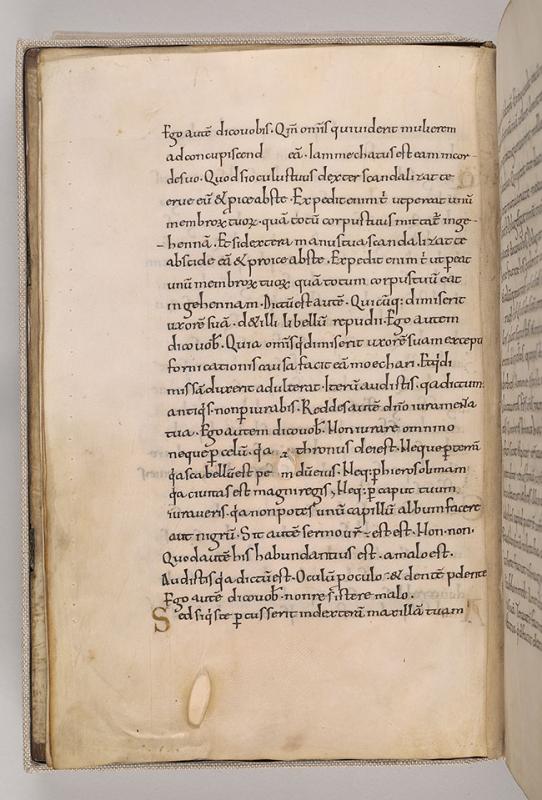 Ego autē dico vobis. Qm̄ om̄is qui viderit mulierem
ad concupiscend eā. Iam mechatus est eam in cor
de suo. Quod si oculus tuus dexter scandalizat te
erue eū & proice abs te. Expedit enim t̄ ut pereat unū
membroꝝ tuoꝝ. quā totū corpus tuus mittat̄ inge-
hennā. Et si dextera manus tua scandalizat te
abscide eā & proice abs te. Expedit enim t̄ ut ꝑeat
unū membroꝝ tuoꝝ quā totum corpus tuū eat
in gehennam. Dictū est autē. Quicūq; dimiserit
uxorē suā. d&illi libellū repudii. Ego autem
dico vob̄. Quia om̄is q̇ dimiserit uxorē suam exceptā
fornicationis causa facit eā moechari. Et q̇ di
missā duxerit adulterat. Iterū audistis. q̇a dictum
antiq̇s. non ꝑiurabis. Reddes autē dn̄o iuramenta
tua. Ego autem dico vob̄. Non iurare omnino
neque ꝑ celū. q̇a thronus dei est. Neque ꝑ terrā
q̇a scabellū est pe m dū eius. Neq; ꝑ hierosolimam
q̇a civitas est magni regis, Neq; ꝑ caput tuum
iuraveris. q̇a non potes unū capillū album facere
aut nigrū. Sit autē sermo vr̄ est est. Non. non.
Quod autē his habundantius est. a malo est.
Audistis q̇a dictū est. Oculū ꝓ oculo. & dentē ꝓ dente
Ego autē dico vob̄. non resistere malo.
Sed si q̇s te ꝑcusserit in dexterā maxillā tuam